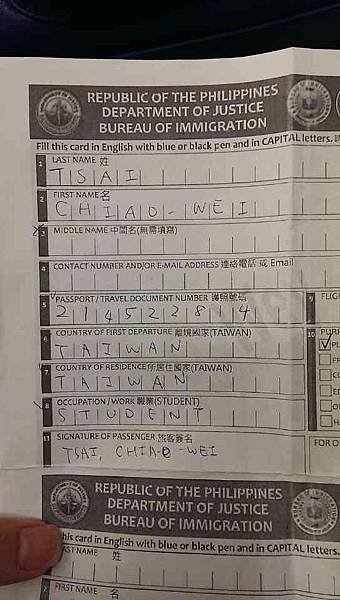 REPUBLIC OF THE PHILIPPINES
DEPARTMENT OF JUSTICE
BUREAU OF IMMIGRATION
Fill this card in English with blue or black pen and in CAPITAL letters.
1 LAST NAME 姓
TSAI
2 FIRST NAME 名
CHIAO-WEI
3 MIDDLE NAME 中間名(無需填寫)
4 CONTACT NUMBER AND/OR E-MAIL ADDRESS 連絡電話 或 Email
5 PASSPORT / TRAVEL DOCUMENT NUMBER 護照號碼
214522814
9 FLIGH
6 COUNTRY OF FIRST DEPARTURE 離境國家(TAIWAN)
TAIWAN
10 PURP
7 COUNTRY OF RESIDENCE 所居住國家(TAIWAN)
TAIWAN
8 OCCUPATION / WORK 職業(STUDENT)
STUDENT
11 SIGNATURE OF PASSENGER 旅客簽名
FOR O
TSAI, CHIAO-WEI
REPUBLIC OF THE PHILIPPINES
DEPARTMENT OF JUSTICE
BUREAU OF IMMIGRATION
this card in English with blue or black pen and in CAPITAL letters.
LAST NAME 姓
FIRST NAME 名